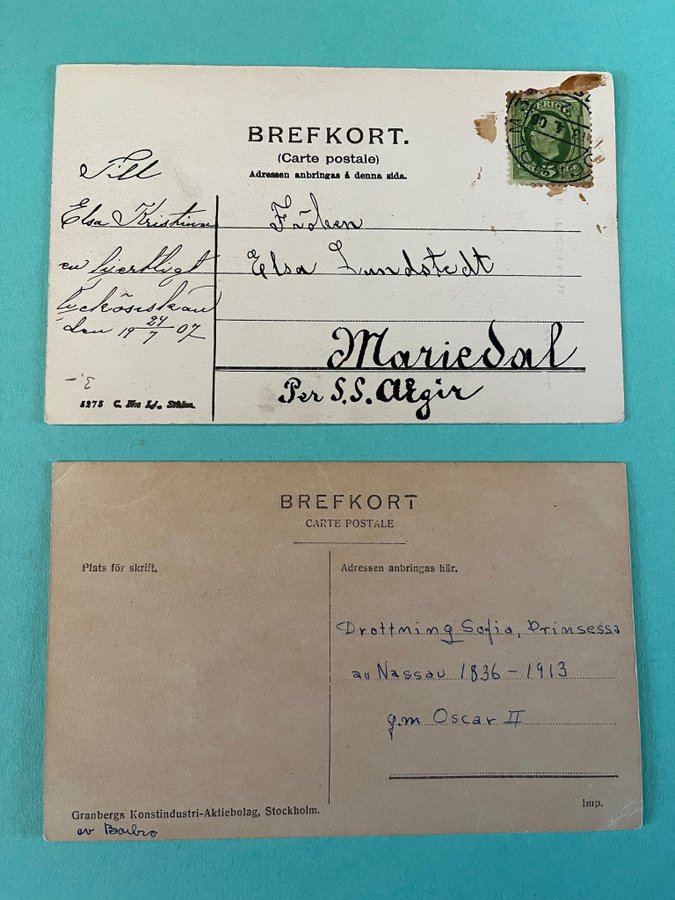 BREFKORT.
(Carte postale)
Adressen anbringas å denna sida.
SVERIGE
5
Till
Elsa Kristina
en hjertligt
lyckönskan
den 19 24/7 07
Fröken
Elsa Lundstedt
Mariedal
Per S.S. Ægir
5275
BREFKORT
CARTE POSTALE
Plats för skrift.
Adressen anbringas här.
Drottning Sofia, Prinsessa
av Nassau 1836-1913
g.m Oscar II
Granbergs Konstindustri-Aktiebolag, Stockholm.
Imp.
av Barbro